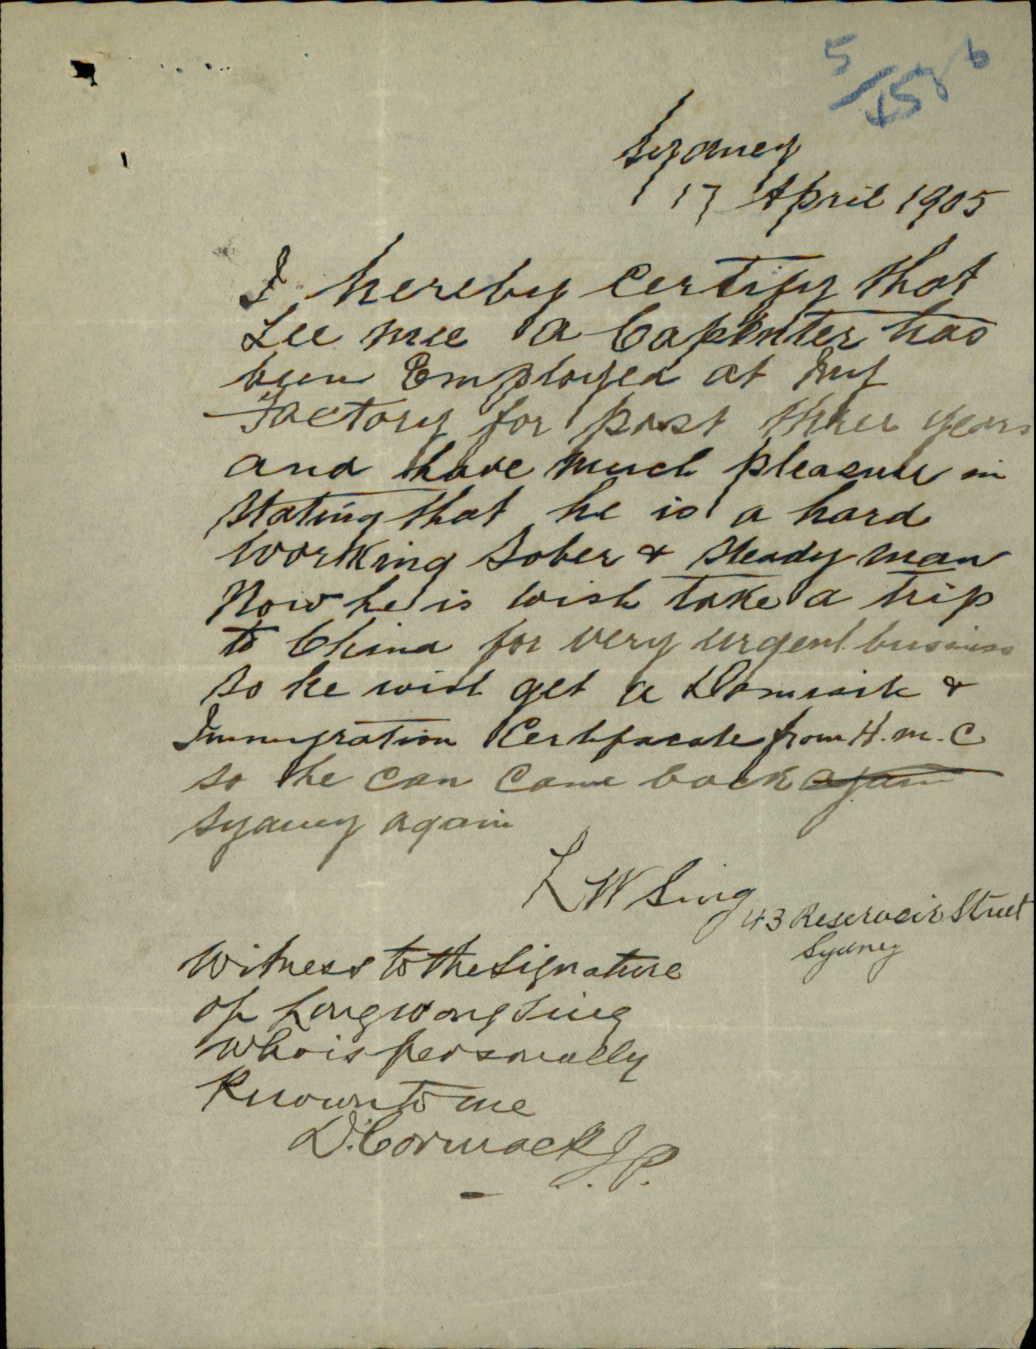 5/4586
Sydney
17 April 1905
I hereby certify that
Lee mee a Capenter has
been Employed at my
Factory for past three years
and have much pleasure in
stating that he is a hard
working sober & steady man
Now he is wish take a trip
to China for very urgent business
so he wish get a Domicile &
Immigration Certificate from H.M.C
so he can come back again
Sydney again
L W Sing
43 Reservoir Street
Sydney
Witness to the Signature
of Long Wong Sing
who is personally
Known to me
D. Cormack J.P.